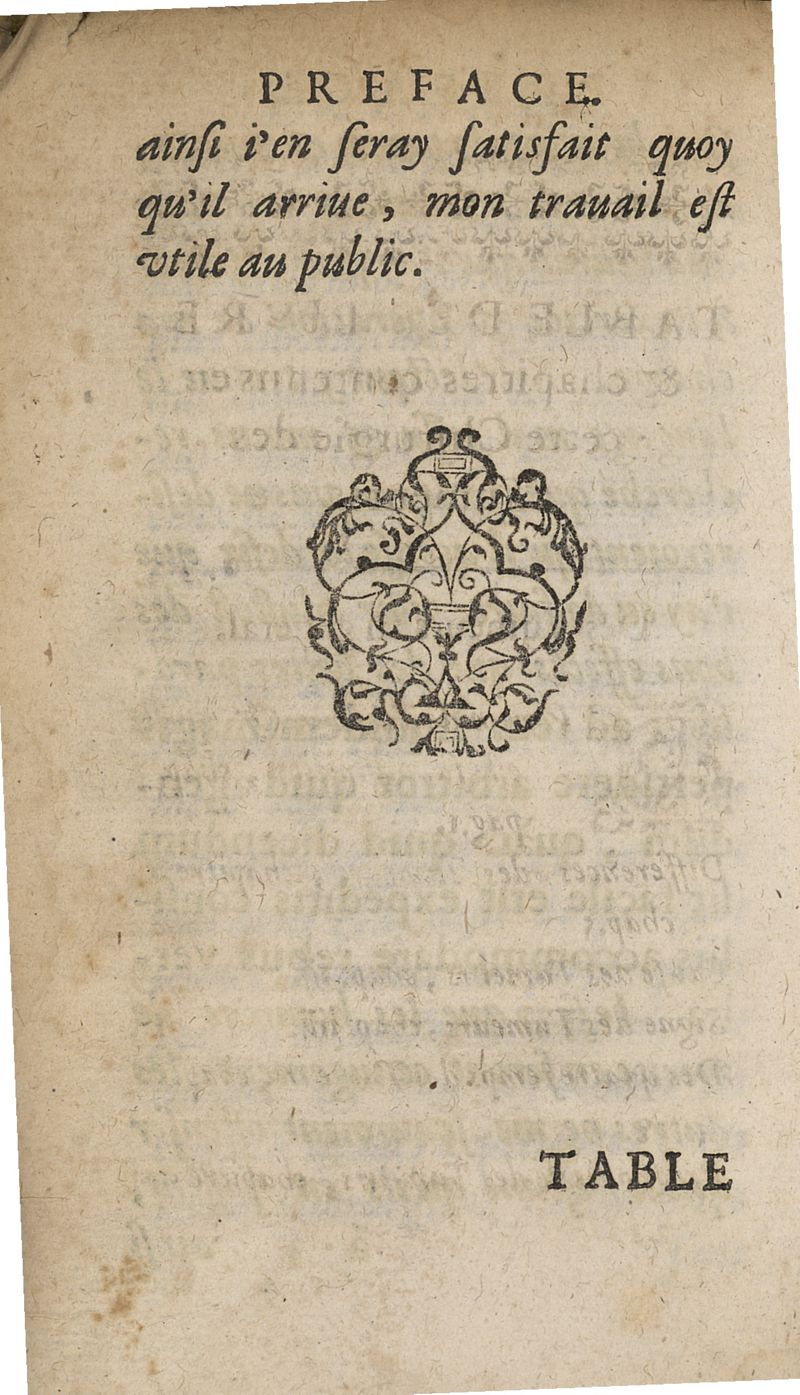 PREFACE.
ainſi i'en ſeray ſatisfait quoy
qu'il arriue, mon trauail eſt
vtile au public.
TABLE